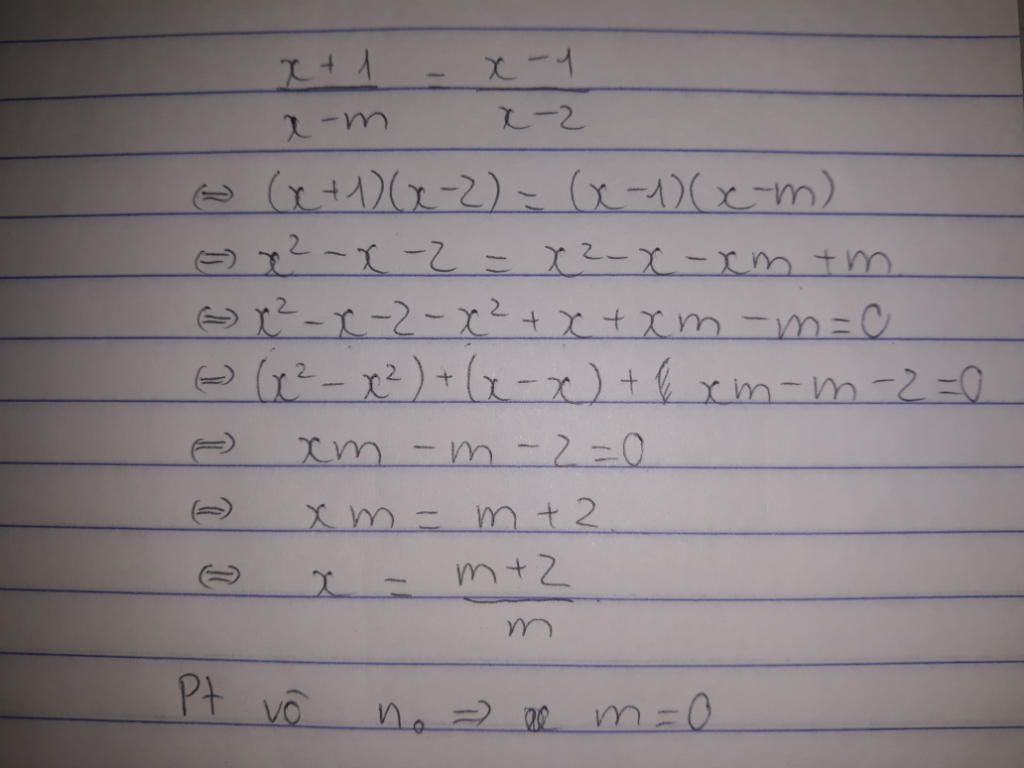 x+1 / x-m = x-1 / x-2
⇔ (x+1)(x-2) = (x-1)(x-m)
⇔ x² - x - 2 = x² - x - xm + m
⇔ x² - x - 2 - x² + x + xm - m = 0
⇔ (x² - x²) + (x - x) + ( xm - m - 2 = 0
⇔ xm - m - 2 = 0
⇔ xm = m + 2
⇔ x = m+2 / m
Pt vô n₀ ⇒ m = 0